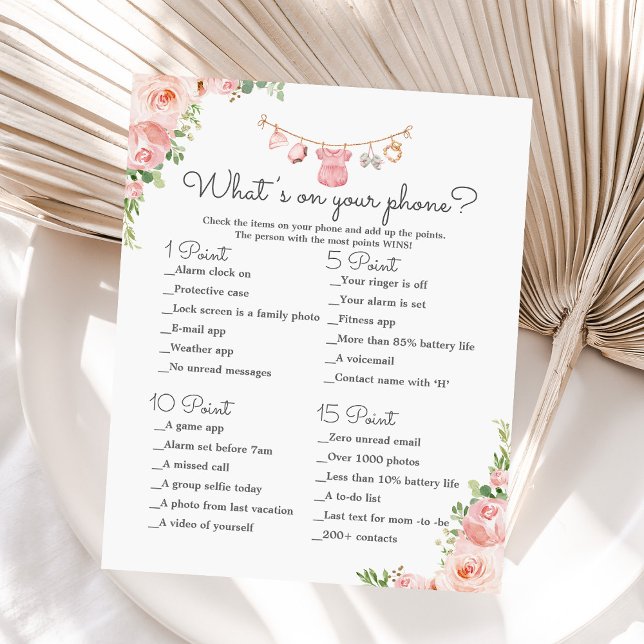 What's on your phone?
Check the items on your phone and add up the points.
The person with the most points WINS!
1 Point
__Alarm clock on
__Protective case
__Lock screen is a family photo
__E-mail app
__Weather app
__No unread messages
5 Point
__Your ringer is off
__Your alarm is set
__Fitness app
__More than 85% battery life
__A voicemail
__Contact name with ‘H’
10 Point
__A game app
__Alarm set before 7am
__A missed call
__A group selfie today
__A photo from last vacation
__A video of yourself
15 Point
__Zero unread email
__Over 1000 photos
__Less than 10% battery life
__A to-do list
__Last text for mom -to -be
__200+ contacts